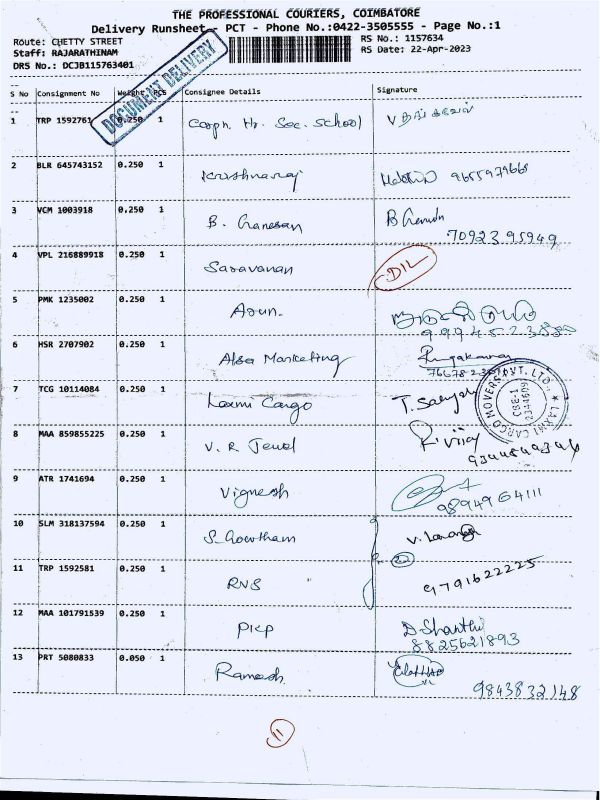 THE PROFESSIONAL COURIERS, COIMBATORE
Delivery Runsheet - PCT - Phone No.:0422-3505555 - Page No.:1
Route: CHETTY STREET
RS No.: 1157634
Staff: RAJARATHINAM
RS Date: 22-Apr-2023
DRS No.: DCJB115763401
DOCUMENT DELIVERY
S No Consignment No Weight PCS Consignee Details Signature
1 TRP 1592761 0.250 1 Corpn. Hr. Sec. School V
2 BLR 645743152 0.250 1 Krishnaraj
3 VCM 1003918 0.250 1 B. Ganesan B
70923 95949
4 VPL 216889918 0.250 1 Saravanan DIL
5 PMK 1235002 0.250 1 Arun.
6 HSR 2707902 0.250 1 Alsa Marketing
7 TCG 10114084 0.250 1 Laxmi Cargo T.
LAXMI CARGO MOVERS PVT. LTD.
CBE-1
2344609
8 MAA 859855225 0.250 1 V. R Jewel R Vijay
9 ATR 1741694 0.250 1 Vignesh
9894964111
10 SLM 318137594 0.250 1 S. Gowtham V.
11 TRP 1592581 0.250 1 RNS 9791622225
12 MAA 101791539 0.250 1 PKP D Shanthi
8825621893
13 PRT 5080833 0.050 1 Ramesh
9843832148
11